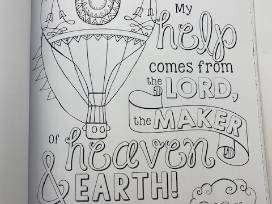 My
help
comes from
the LORD,
the MAKER
of heaven
& EARTH!